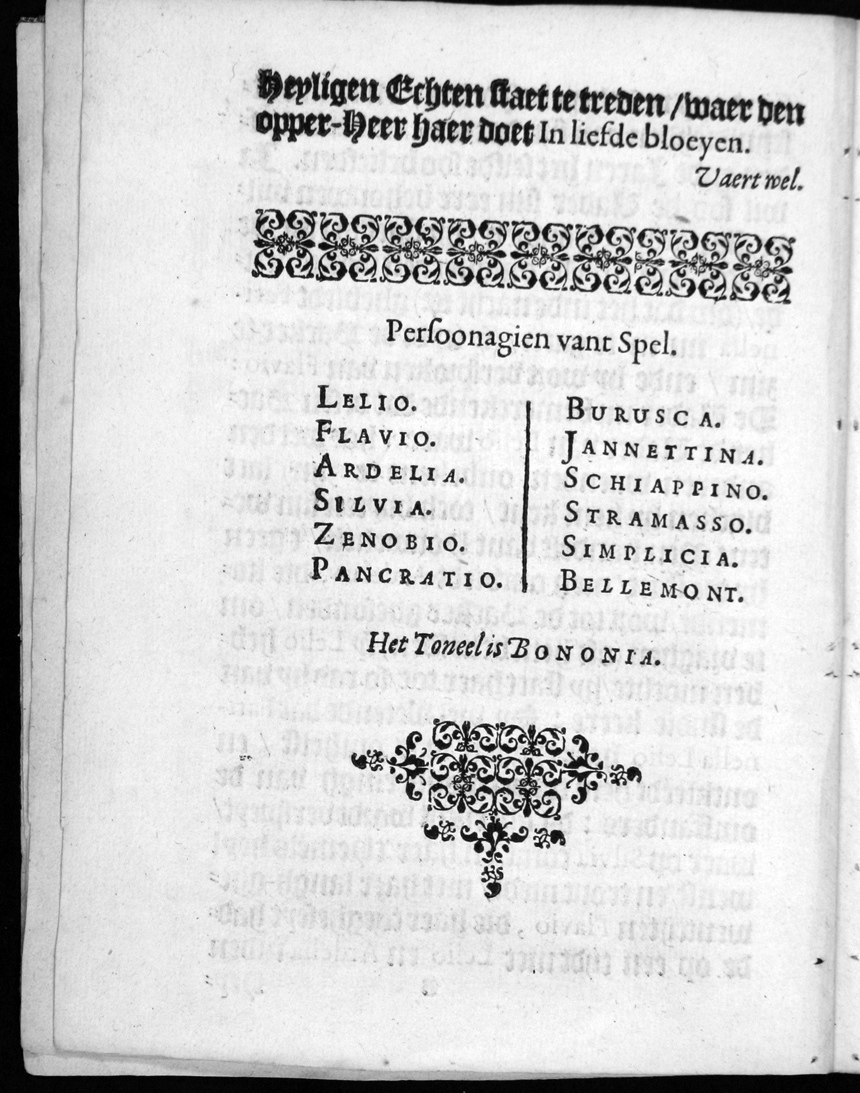 Heyligen Echten staet te treden / waer den
opper-Heer haer doet In liefde bloeyen.
Vaert wel.
Perſoonagien vant Spel.
LELIO.
FLAVIO.
ARDELIA.
SILVIA.
ZENOBIO.
PANCRATIO.
BURUSCA.
JANNETTINA.
SCHIAPPINO.
STRAMASSO.
SIMPLICIA.
BELLEMONT.
Het Toneel is BONONIA.